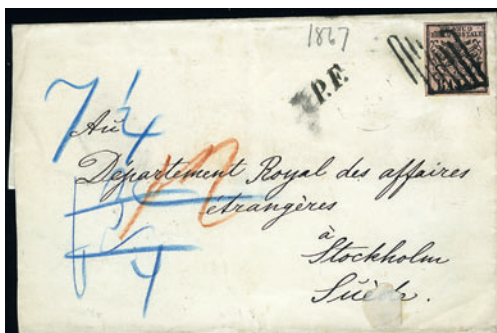 1867
FRANCO
POSTALE
P.F.
7 1/4
Au
Département Royal des affaires
étrangères
à
Stockholm
Suède.